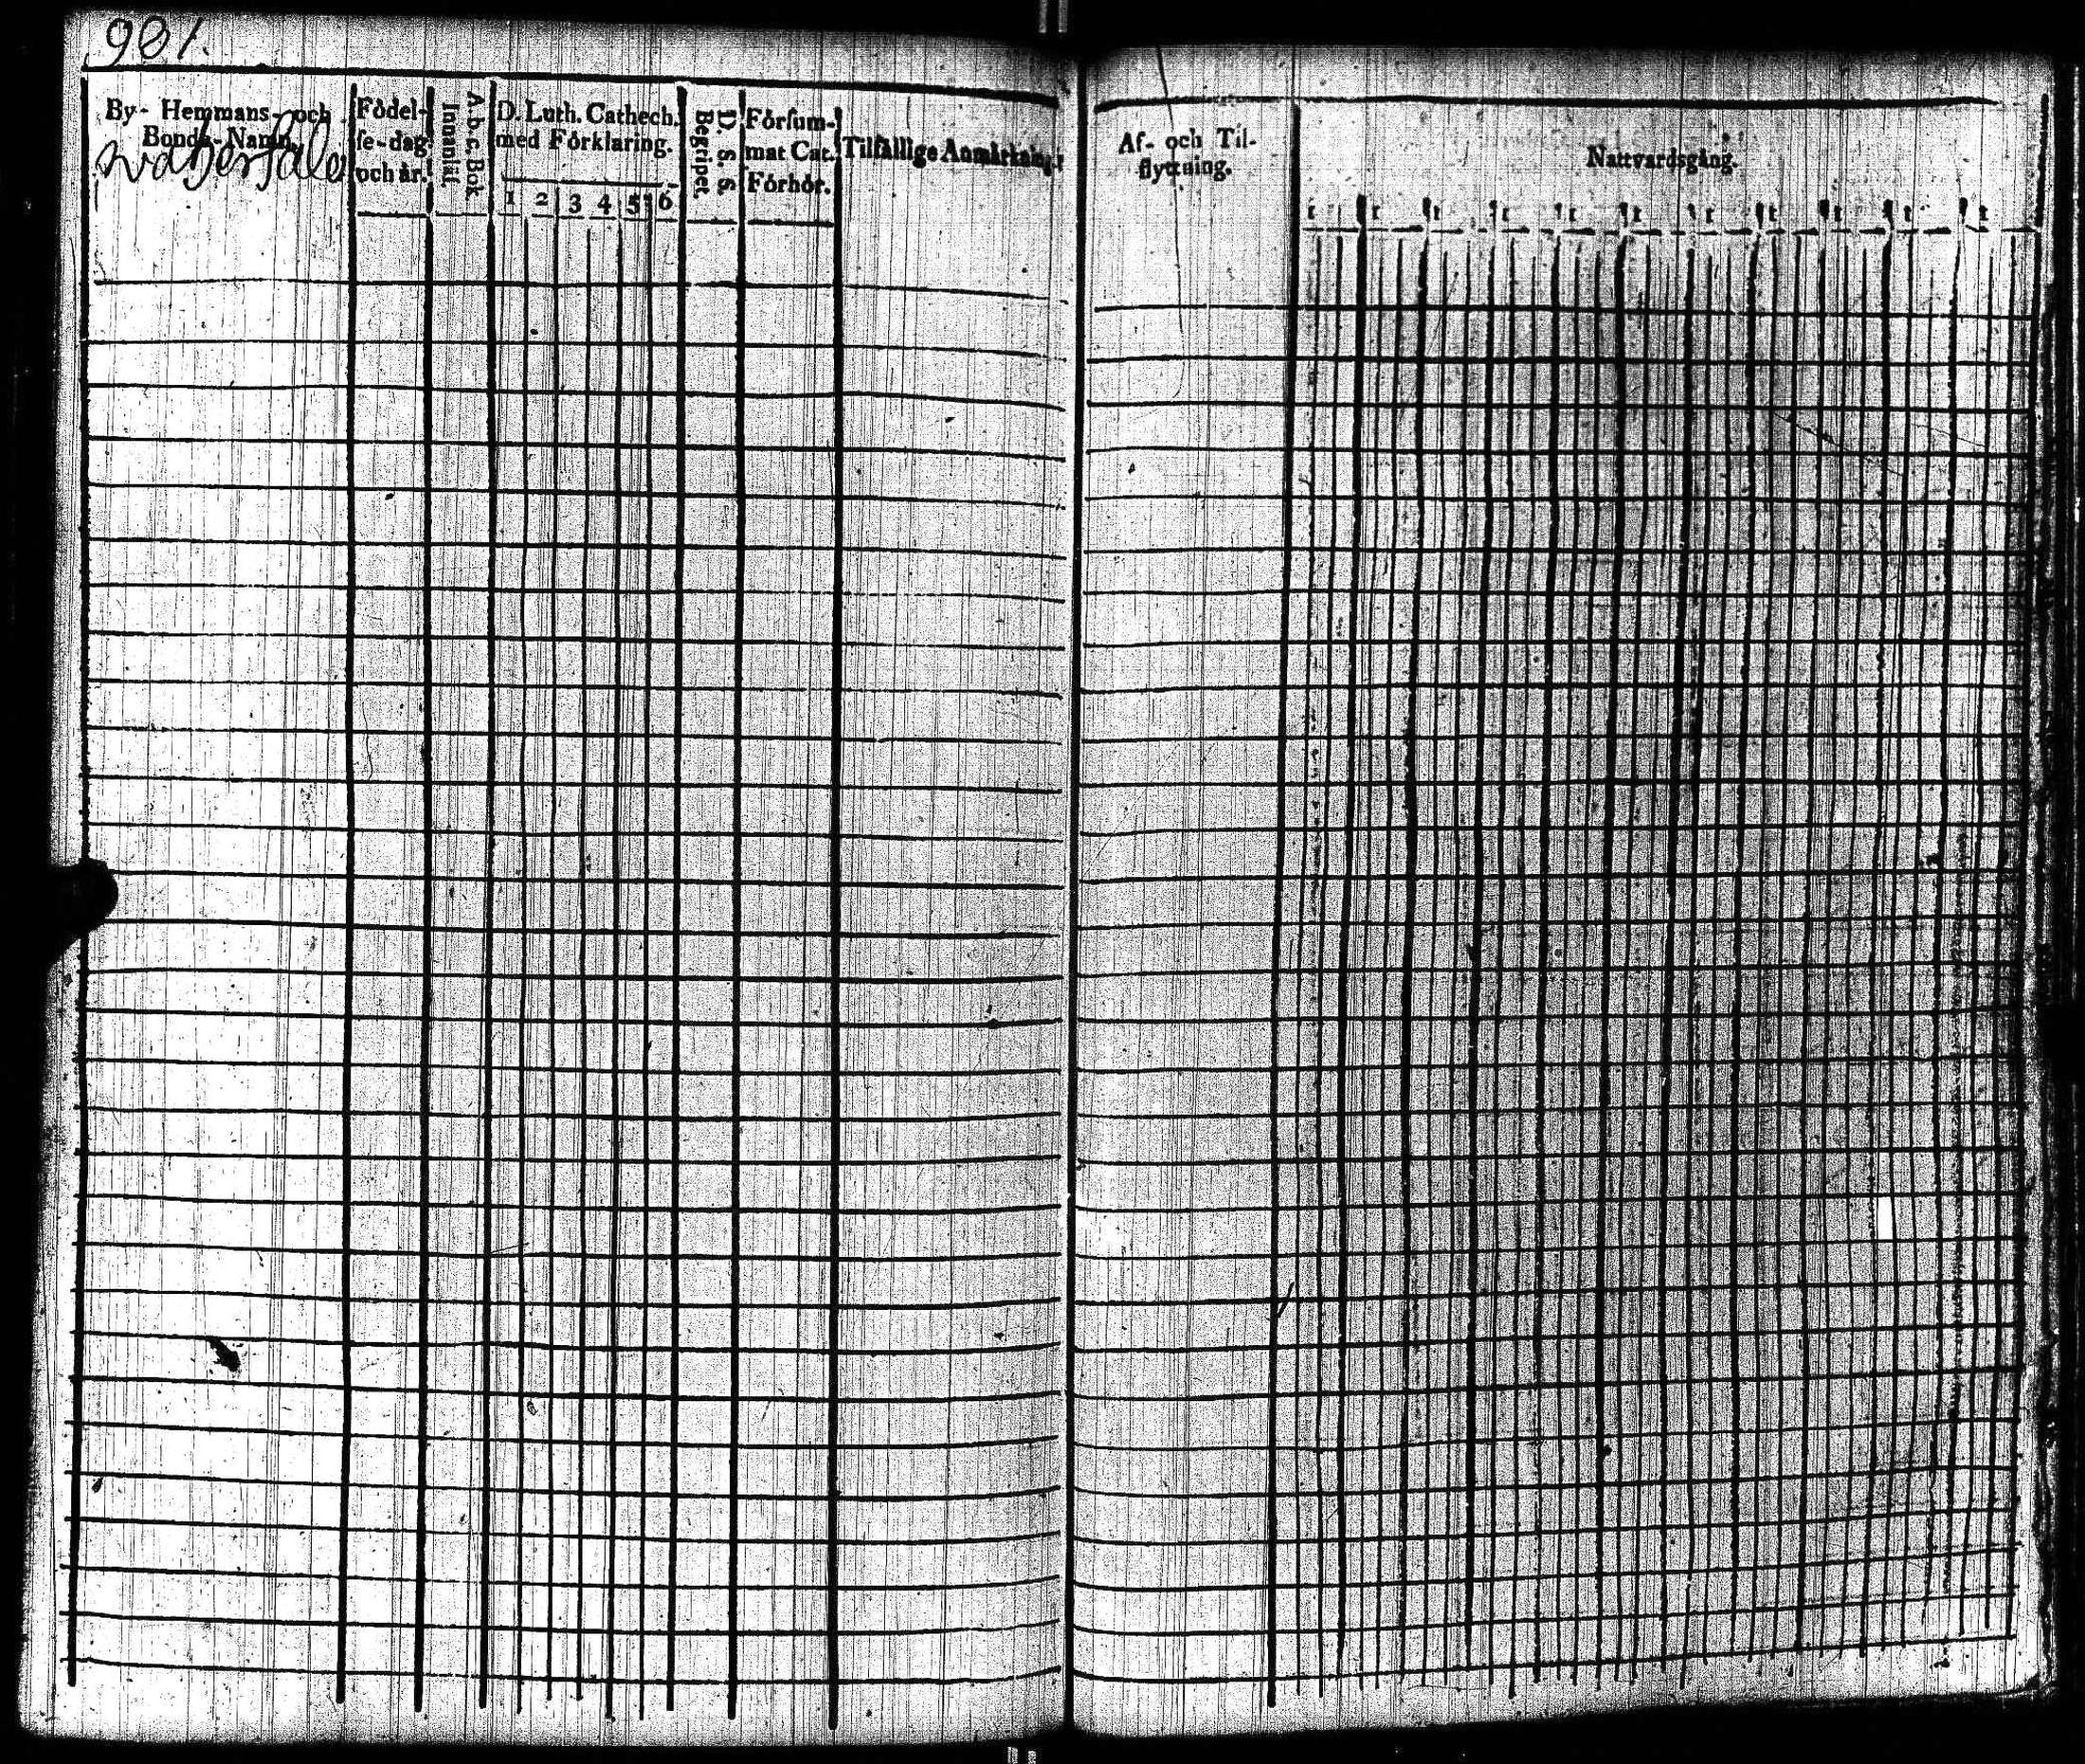 901.
By- Hemmans- och
Bonde-Namn.
Födel-
se-dag
och år.
A.b.c. Bok
Innanläs.
D. Luth. Cathech.
med Förklaring.
1 2 3 4 5 6
D. S. S.
Begripet.
Försum-
mat Cat.
Förhör.
Tilfällige Anmärkning.
Af- och Til-
flyttning.
Nattvardsgång.
t t t t t t t t t t t